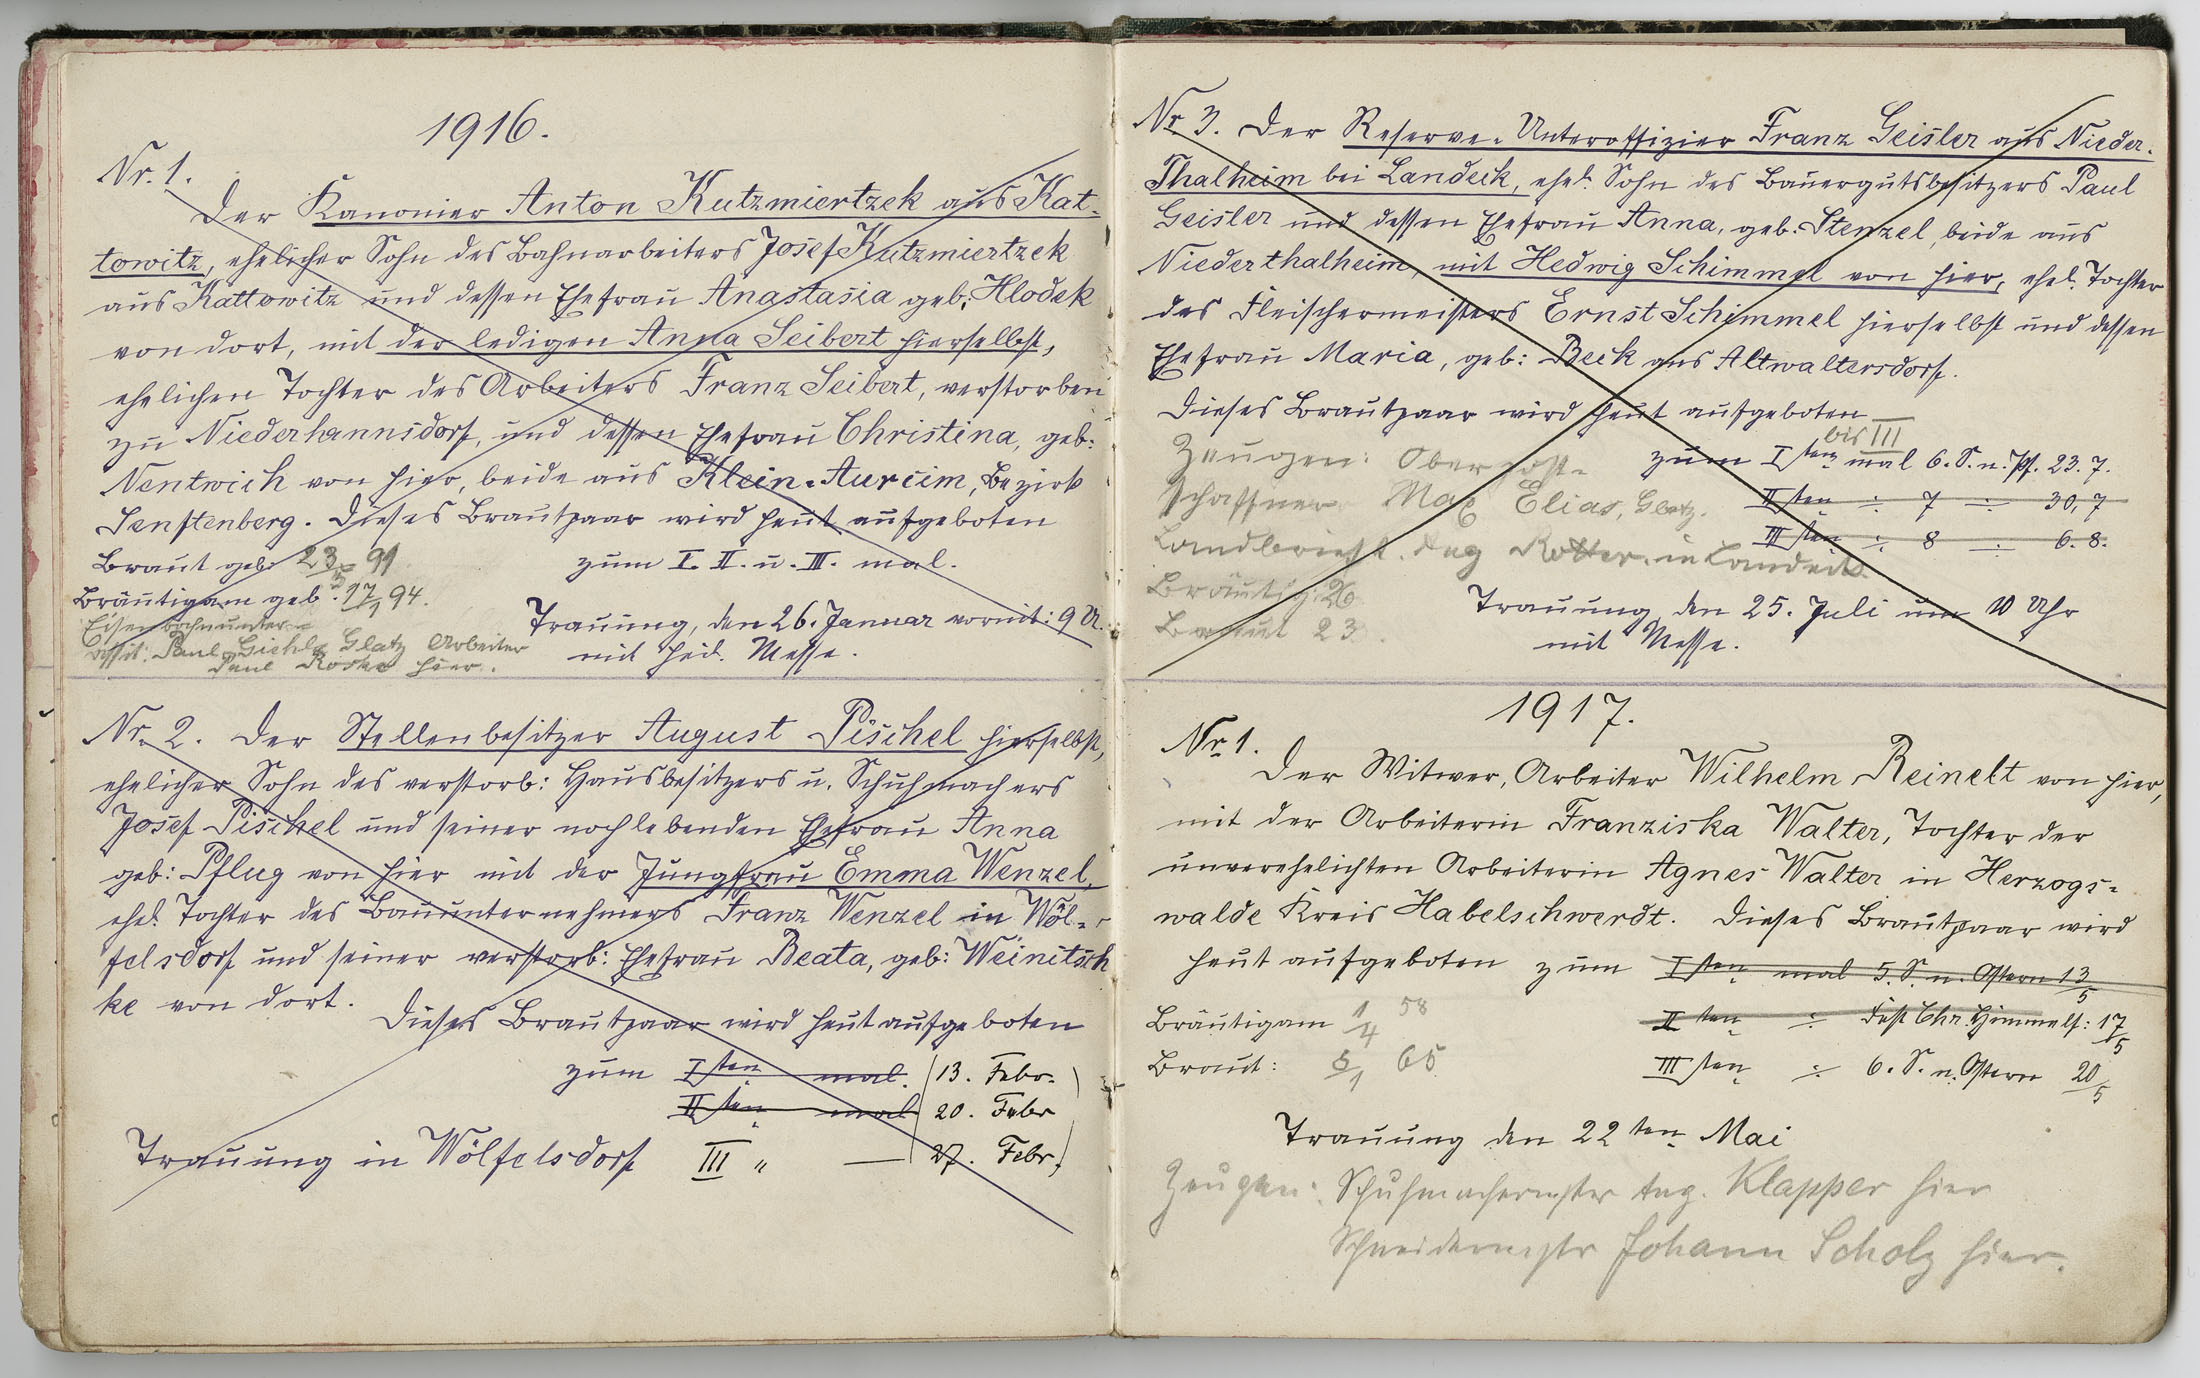 1916.
Nr. 1.
Der Kanonier Anton Kutzmiertzek aus Kat-
towitz, ehelicher Sohn des Bahnarbeiters Josef Kutzmiertzek
aus Kattowitz und dessen Ehefrau Anastasia geb: Hlodek
von dort, mit der ledigen Anna Seibert hierselbst,
ehelichen Tochter des Arbeiters Franz Seibert, verstorben
zu Niederhannsdorf, und dessen Ehefrau Christina, geb:
Nentwich von hier, beide aus Klein-Aurim, Bezirk
Senftenberg. Dieses Brautpaar wird heut aufgeboten
Braut geb: 23/5 91 zum I. II. u. III. mal.
Bräutigam geb. 17/1 94.
Trauung, den 26. Januar vormit: 9 U.
mit heil. Messe.
Eisenbahnunter-
assit: Paul Giehl Glatz Arbeiter
Paul Roske hier.
Nr. 2. Der Stellenbesitzer August Pischel hierselbst,
ehelicher Sohn des verstorb: Hausbesitzers u. Schuhmachers
Josef Pischel und seiner noch lebenden Ehefrau Anna
geb: Pflug von hier mit der Jungfrau Emma Wenzel,
ehel. Tochter des Bauunternehmers Franz Wenzel in Wöl-
felsdorf und seiner verstorb: Ehefrau Beata, geb: Weinitsch
ke von dort.
Dieses Brautpaar wird heut aufgeboten
zum I sten mal. (13. Febr.)
II ten mal 20. Febr
Trauung in Wölfelsdorf III " — 27. Febr.
Nr 3. Der Reserve-Unteroffizier Franz Geisler aus Nieder-
Thalheim bei Landeck, ehel. Sohn des Bauergutsbesitzers Paul
Geisler und dessen Ehefrau Anna, geb: Stenzel, beide aus
Niederthalheim, mit Hedwig Schimmel von hier, ehel. Tochter
des Fleischermeisters Ernst Schimmel hierselbst und dessen
Ehefrau Maria, geb: Beck aus Altwaltersdorf.
Dieses Brautpaar wird heut aufgeboten
bis III
zum I sten mal 6. S. n. Pf. 23. 7.
II ten ÷ 7 ÷ 30,7
III ten ÷ 8 ÷ 6. 8.
Zeugen: Oberpost-
schaffner Max Elias, Glatz.
Landbrieft. Aug Rotter in Landeck
Bräutig: 26
Braut 23.
Trauung den 25. Juli um 10 Uhr
mit Messe.
1917.
Nr. 1.
Der Witwer, Arbeiter Wilhelm Reinelt von hier,
mit der Arbeiterin Franziska Walter, Tochter der
unverehelichten Arbeiterin Agnes Walter in Herzogs-
walde Kreis Habelschwerdt. Dieses Brautpaar wird
heut aufgeboten zum I sten mal 5. S. n. Ostern 13/5
Bräutigam 1/4 58 II ten ÷ Fest Chr. Himmelf: 17/5
Braut: 5/1 65 III ten ÷ 6. S. n. Ostern 20/5
Trauung den 22 ten Mai
Zeugen: Schuhmachermstr Aug. Klapper hier
Schneidermstr Johann Scholz hier.